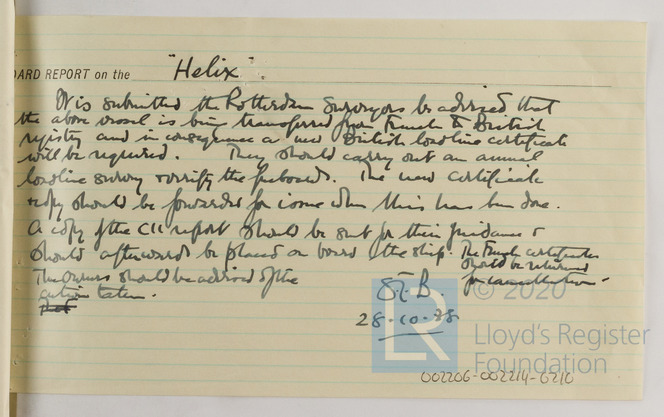 ARD REPORT on the "Helix".
It is submitted the Rotterdam Surveyors be advised that
the above vessel is being transferred from French to British
registry and in consequence a new British loadline certificate
will be required. They should carry out an annual
loadline survey & verify the freeboards. The new certificate
& copy should be forwarded for issue when this has been done.
A copy of the C11 report should be sent for their guidance &
should afterwards be placed on board the ship. The French certificates
should be returned
for cancellation.
The Owners should be advised of the
action taken.
28-10-38
© 2020
LR
Lloyd's Register
Foundation
002206-002214-0210